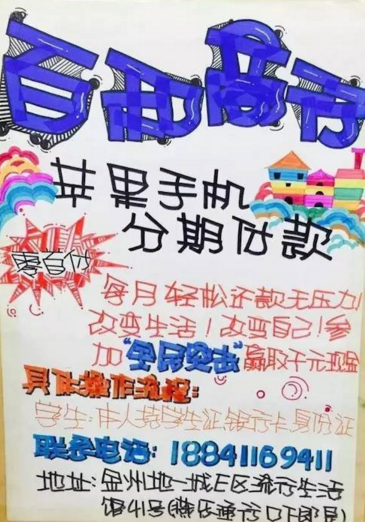 苹果手机
分期付款
零首付
每月轻松还款无压力!
改变生活!改变自己!参
加“全民突击”赢取千元现金
具体操作流程:
学生:本人持学生证银行卡身份证
联系电话:18841169411
地址:金州地一城E区流行生活
馆41号(